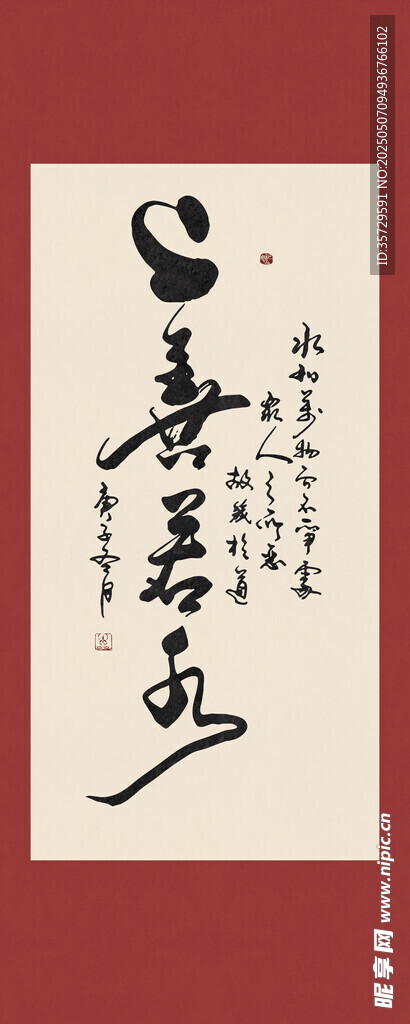 上善若水
水利萬物而不爭處
衆人之所惡
故幾於道
庚子冬月
ID:35729591 NO:20250507094936766102
昵享网 www.nipic.cn